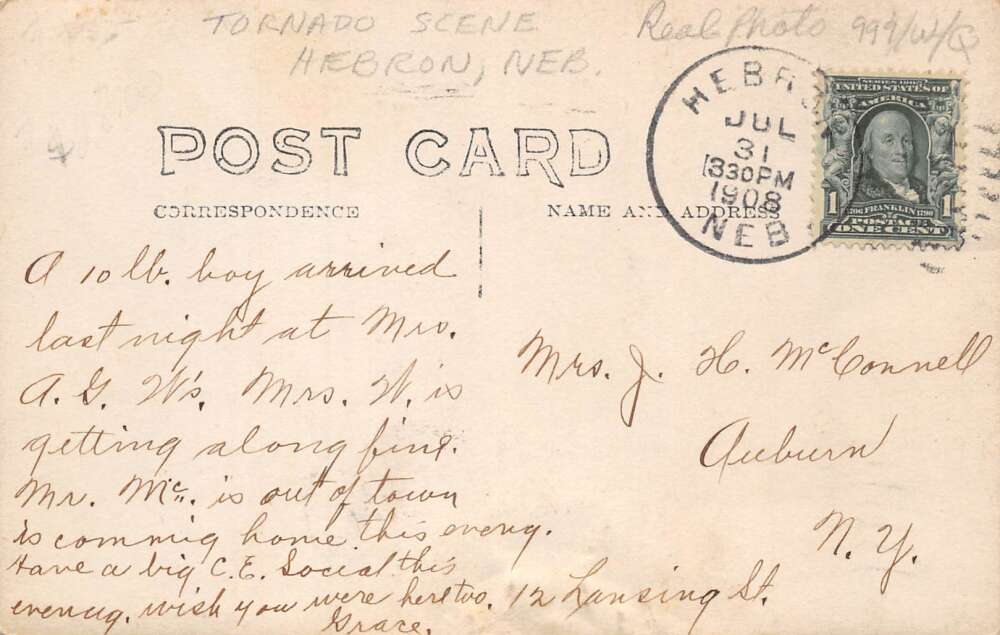 TORNADO SCENE
HEBRON, NEB.
Real Photo 999/W/Q
POST CARD
CORRESPONDENCE
NAME AND ADDRESS
HEBRON
JUL
31
330PM
1908
NEB
SERIES 1902
UNITED STATES OF
AMERICA
1 1
1706 FRANKLIN 1790
POSTAGE
ONE CENT
A 10 lb. boy arrived
last night at Mrs.
A. G. W's. Mrs. W. is
getting along fine.
Mr. Mc. is out of town
is comming home this eveng.
Have a big C.E. Social this
evenug. wish you were here too.
Grace.
Mrs. J. H. McConnell
Auburn
N. Y.
12 Lansing St.